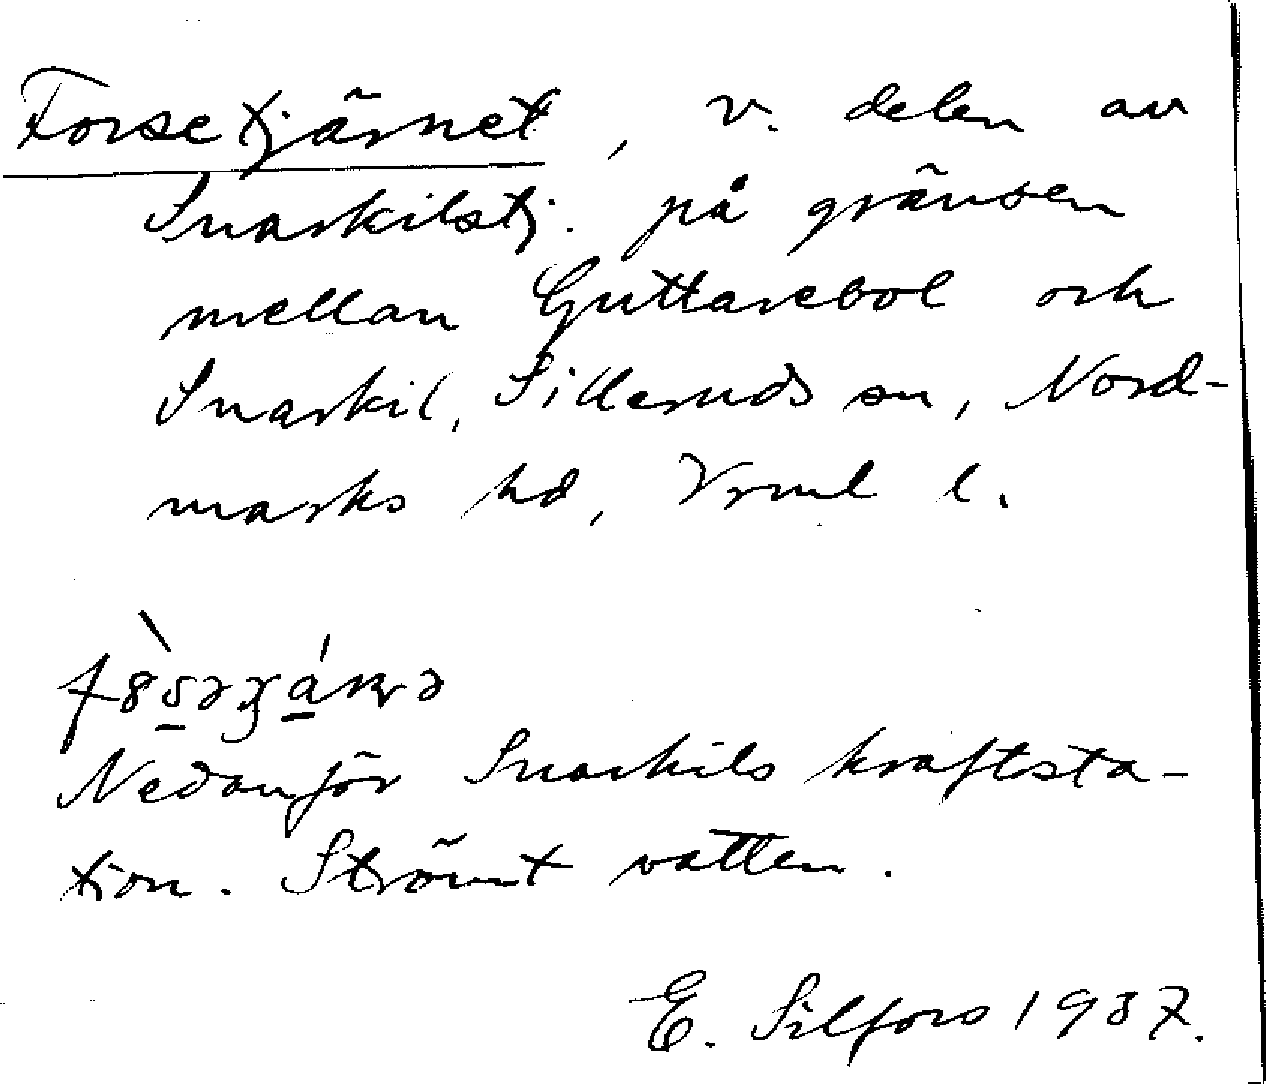 Forsetjärnet, v. delen av
Snarkilstj. på gränsen
mellan Guttarebol och
Snarkil, Silleruds sn, Nord-
marks hd, Vrml l.
Nedanför Snarkils kraftsta-
tion. Strömt vatten.
E. Silfors 1937.